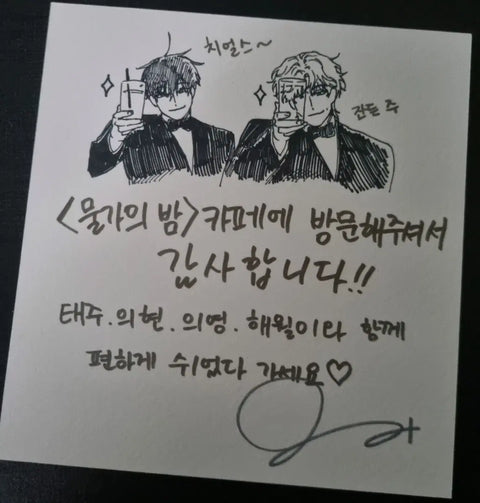 치얼스~
<물가의 밤> 카페에 방문해주셔서
감사합니다!!
태주.의현.의영.해월이랑 함께
편하게 쉬었다 가세요♡